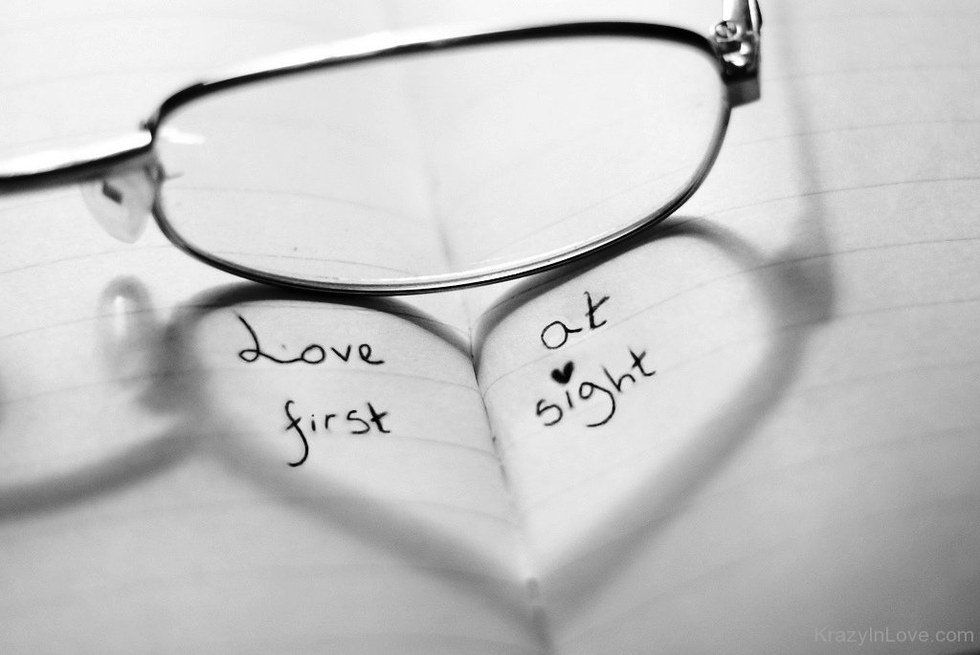 Love at
first sight
KrazyInLove.com